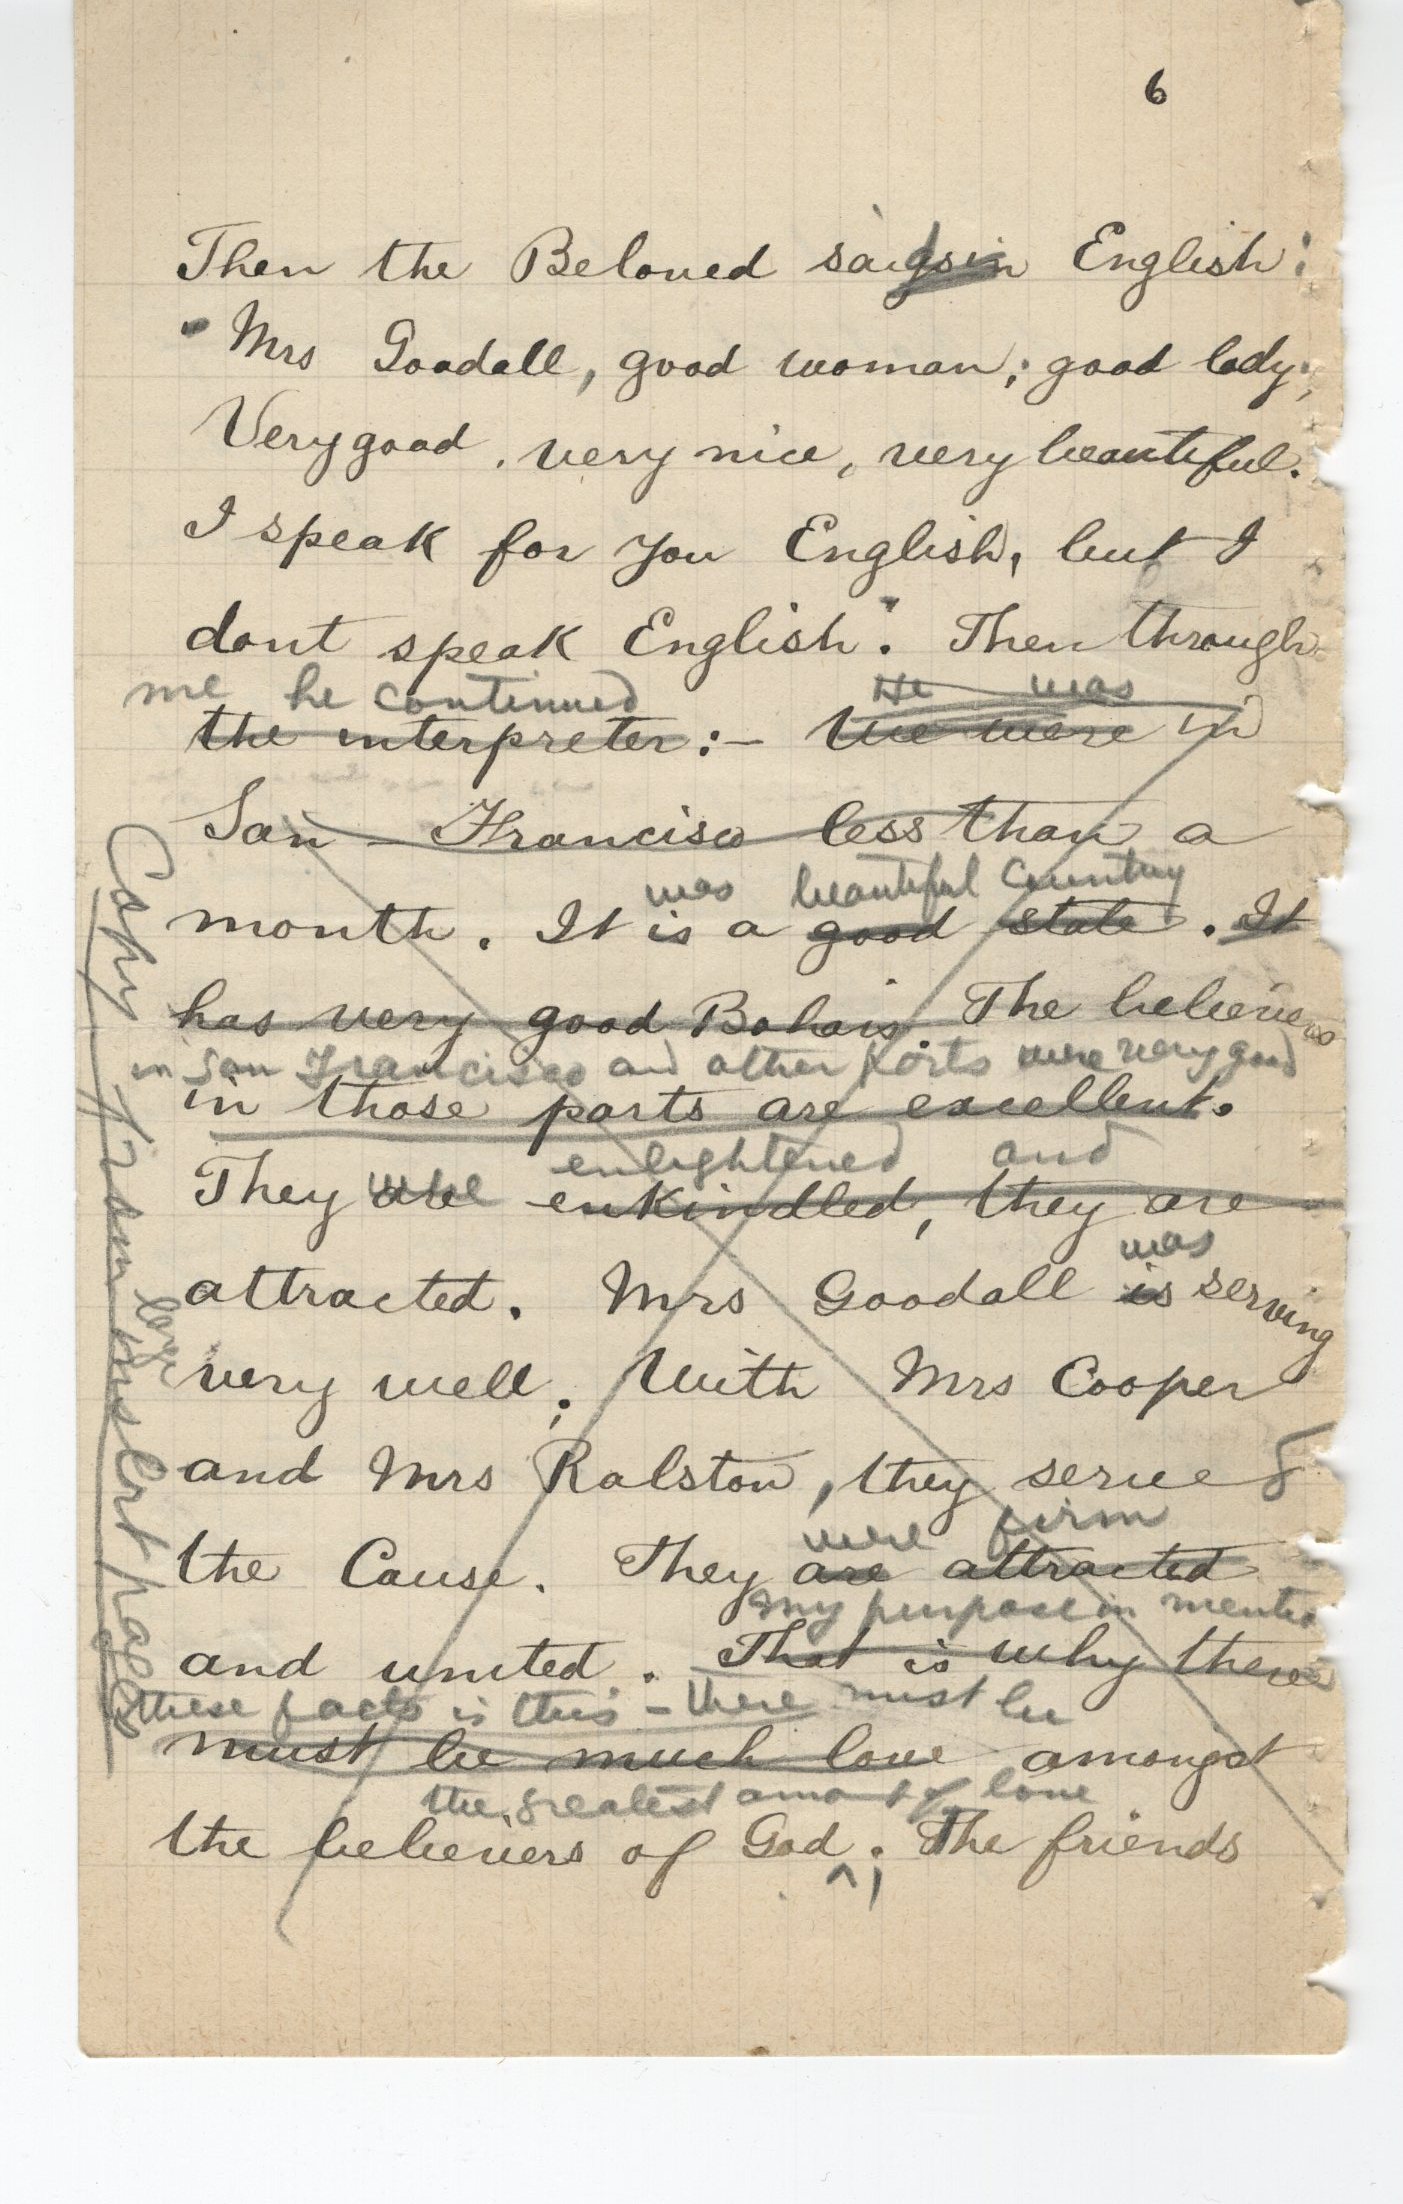 6
Then the Beloved said in English:
"Mrs Goodall, good woman; good lady;
Very good, very nice, very beautiful.
I speak for you English, but I
dont speak English". Then through
me he continued He was
the interpreter:- We were in
San-Francisco less than a
was beautiful country
month. It is a good state. It
has very good Bahais The believers
in San Francisco and other parts were very good
in those parts are excellent.
enlightened and
They are were enkindled, they are
was
attracted. Mrs Goodall is serving
very well; With Mrs Cooper
and Mrs Ralston, they served
were firm
the Cause. They are attracted
my purpose in mentio
and united. That is why there
these facts is this - there must be
must be much love amongst
the greatest amount of love
the believers of God; The friends
Copy from insert page